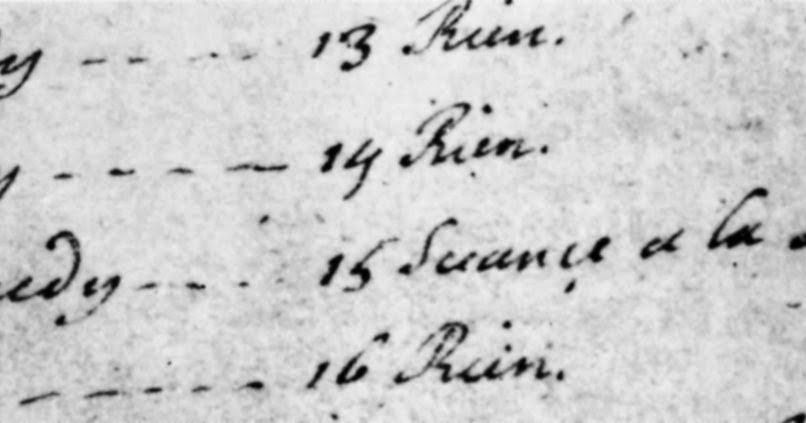 y ---- 13 Rien.
y ----- 14 Rien.
edy ---- 15 Seance a la
------ 16 Rien.